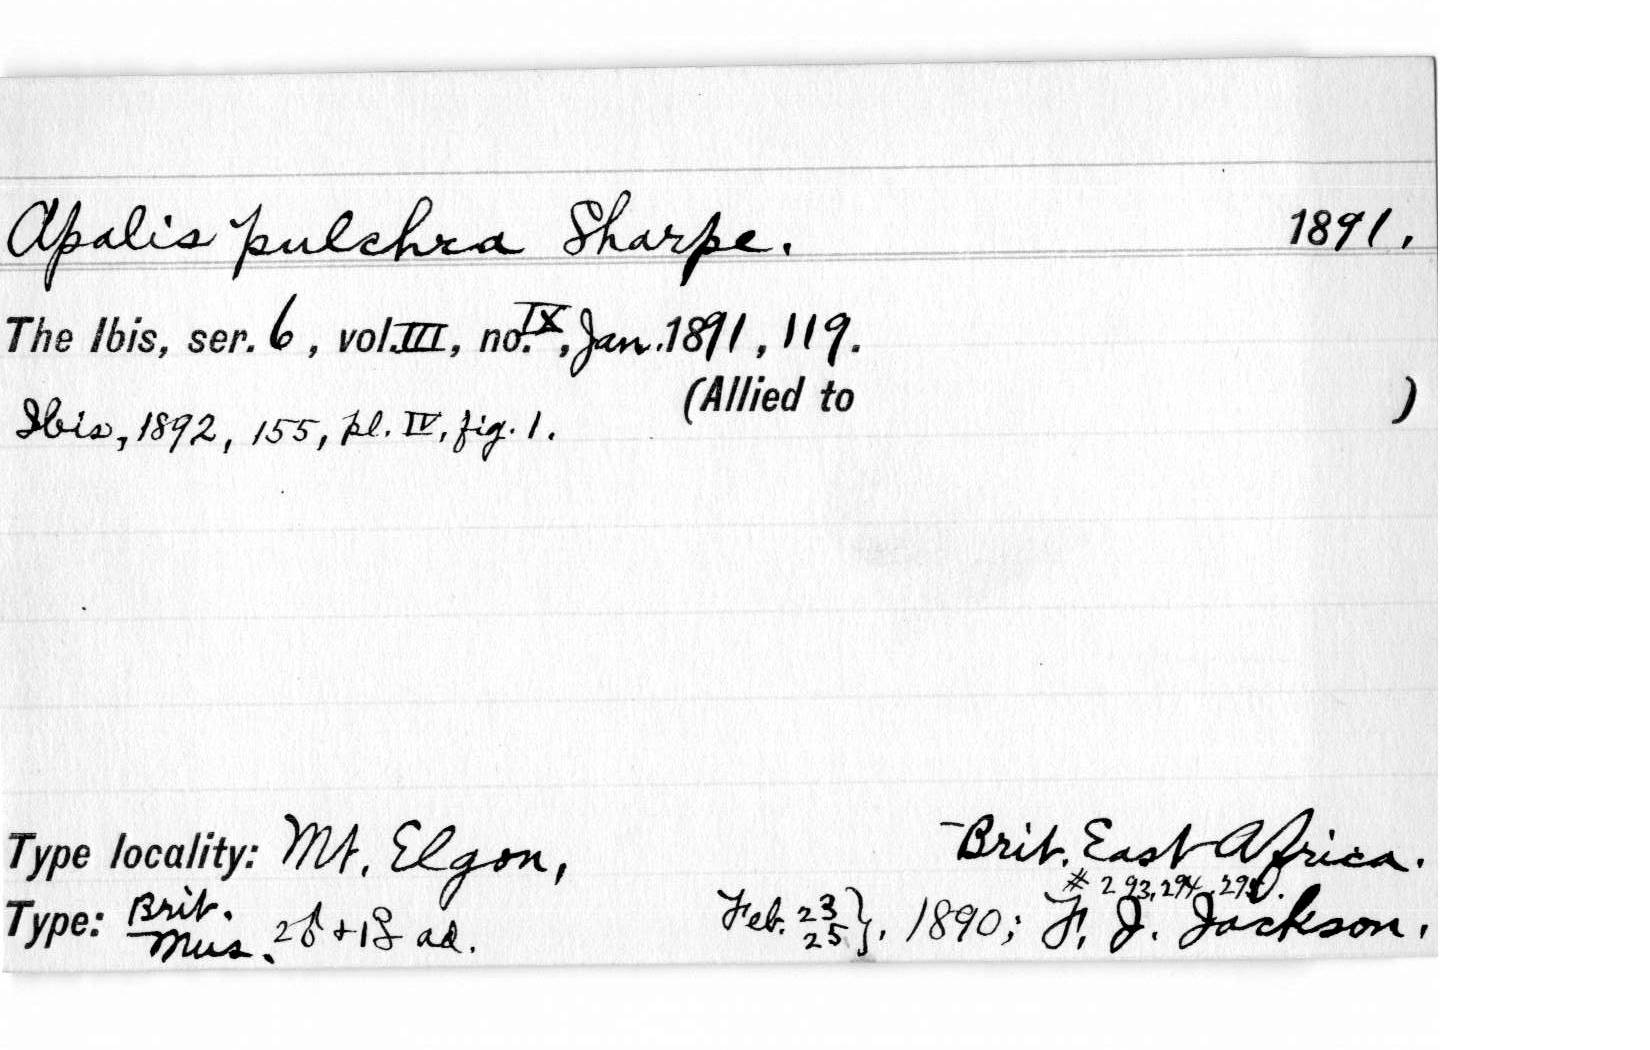 Apalis pulchra Sharpe. 1891.
The Ibis, ser. 6, vol. III, no. IX, Jan. 1891, 119.
(Allied to )
Ibis, 1892, 155, pl. IV, fig. 1.
Type locality: Mt. Elgon, Brit. East Africa.
# 293, 294, 295.
Type: Brit. Mus. 2♂ + 1♀ ad. Feb. 23 25}, 1890; F. J. Jackson.